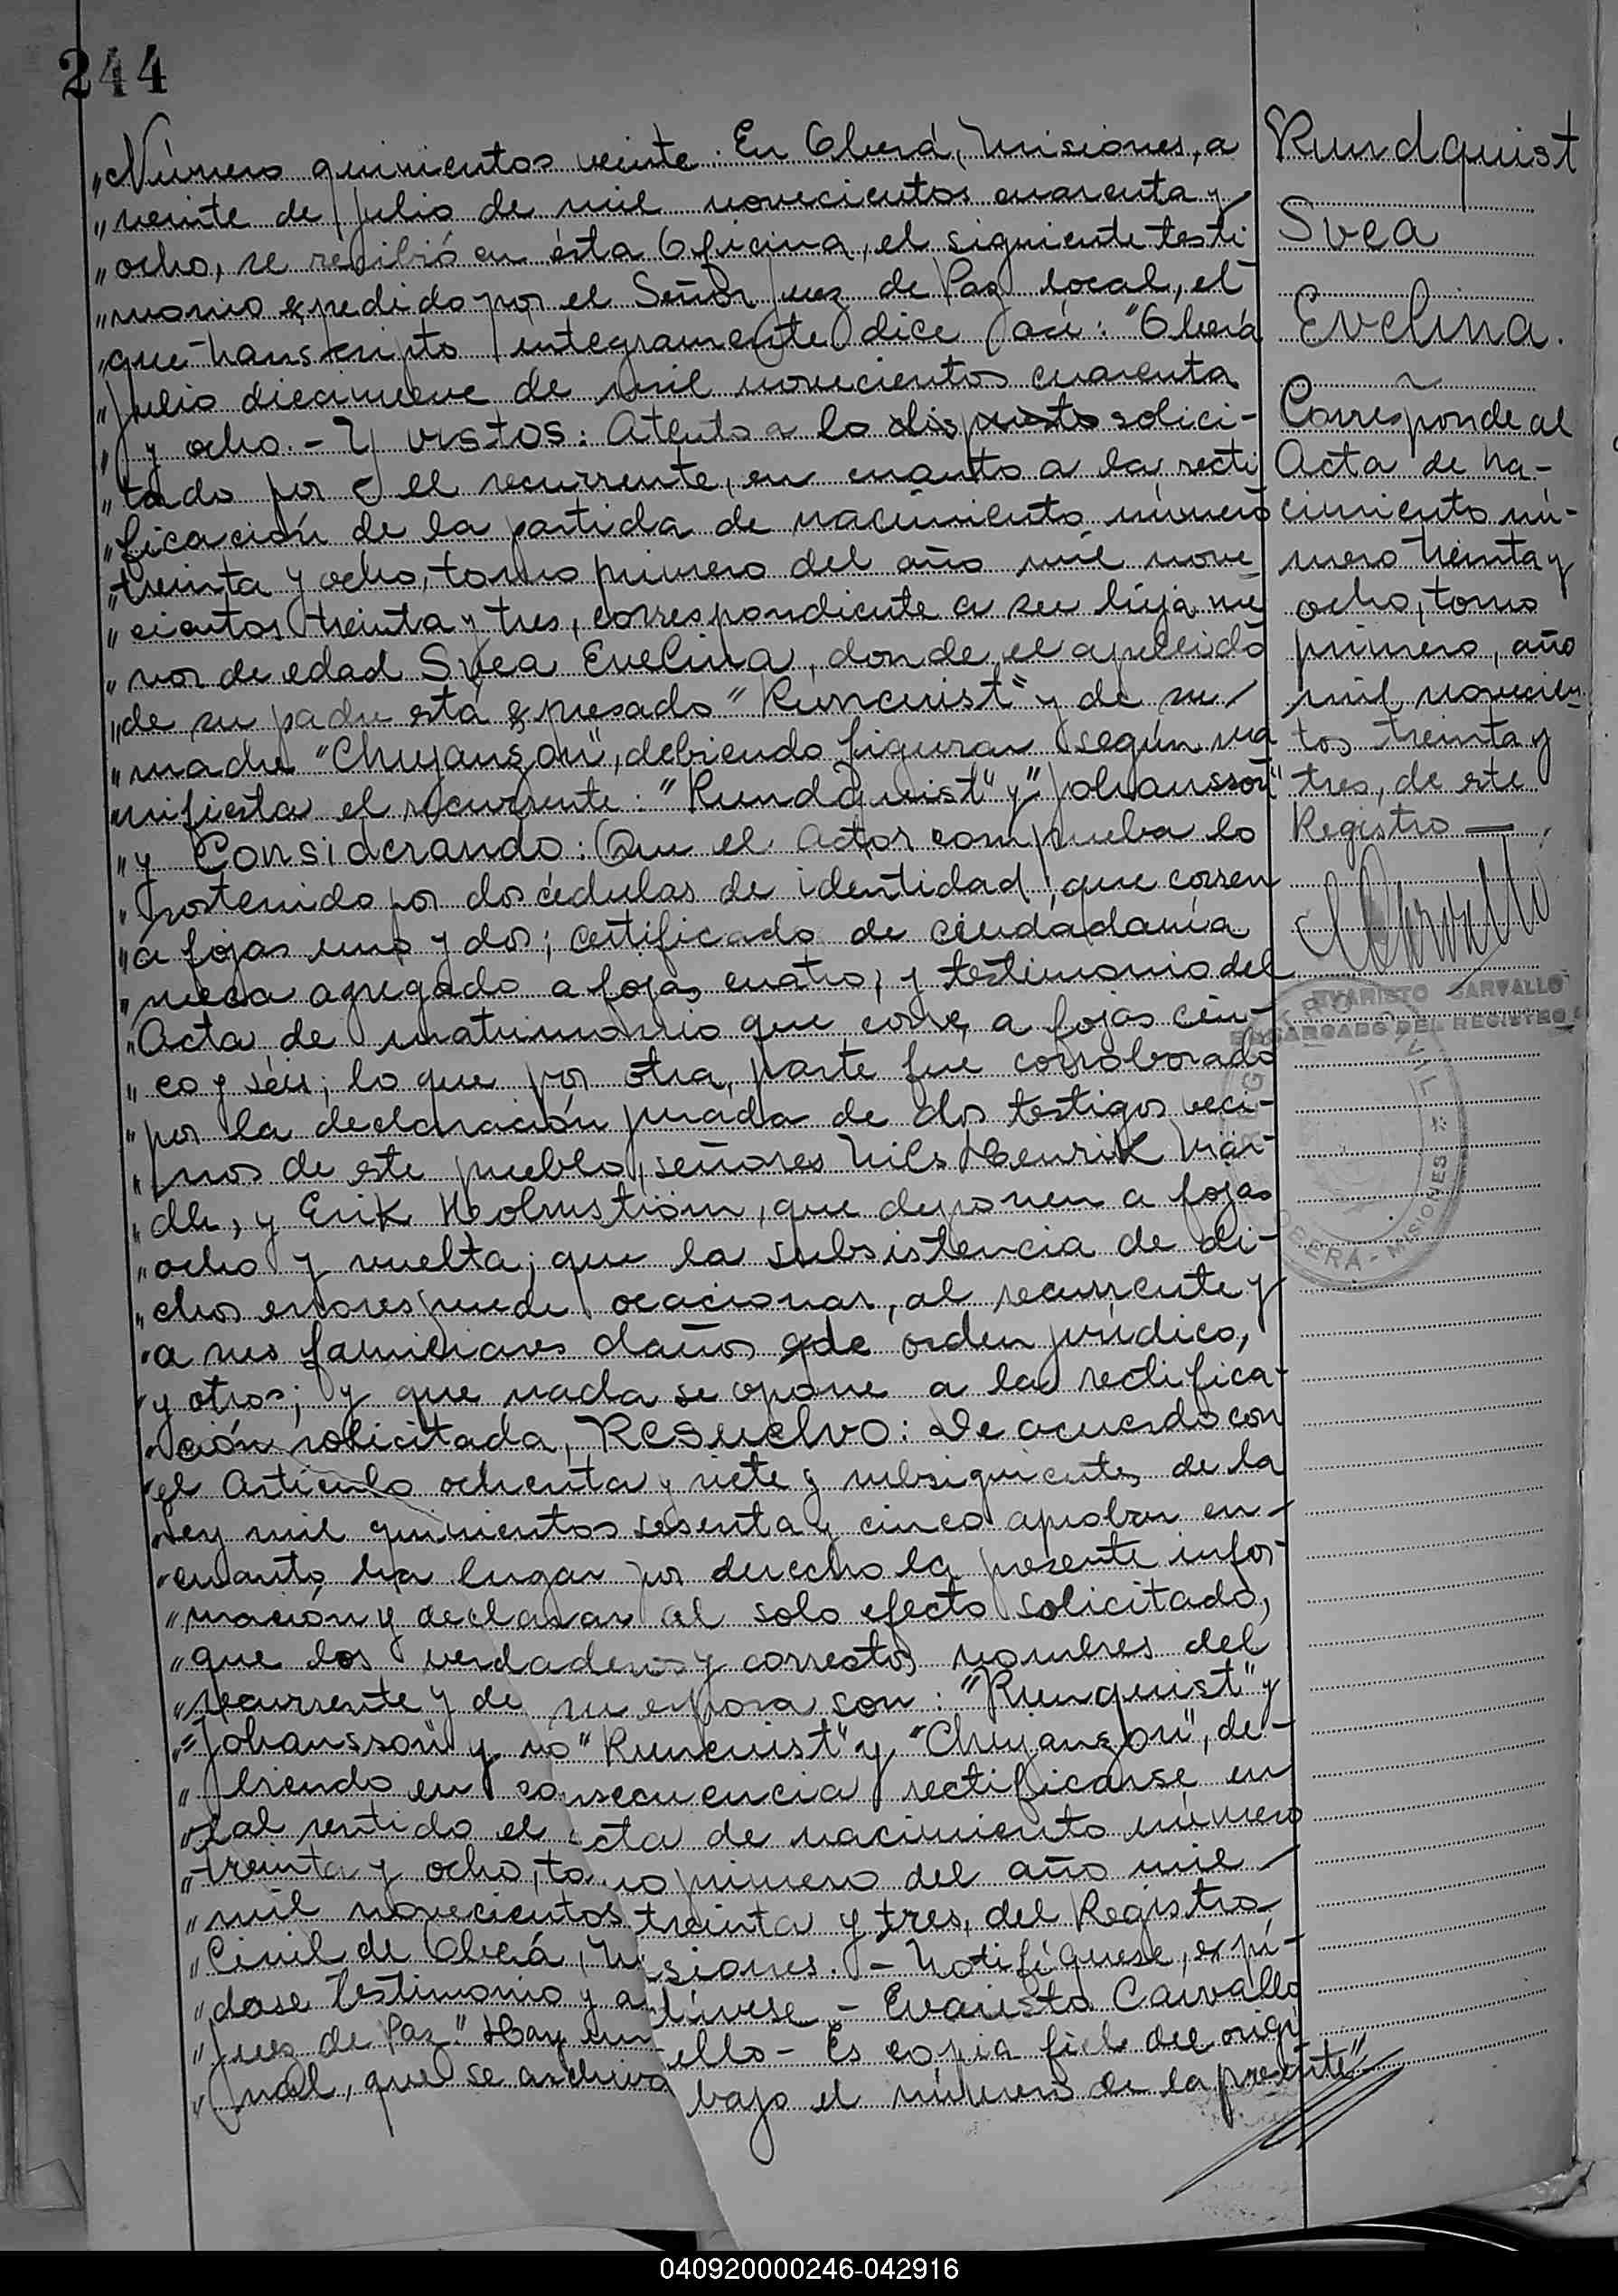 244
"Número quinientos veinte. En Oberá, Misiones, a
"veinte de julio de mil novecientos cuarenta y
"ocho, se recibió en ésta Oficina, el siguiente testi
"monio expedido por el Señor Juez de Paz local, el
"que transcripto integramente dice así: "Oberá
"Julio diecinueve de mil novecientos cuarenta
" y ocho.- Y VISTOS: Atento a lo dispuesto solici-
"tado por el recurrente, en cuanto a la recti
"ficación de la partida de nacimiento número
"treinta y ocho, tomo primero del año mil nove-
"cientos treinta y tres, correspondiente a su hija me
"nor de edad Svea Evelina, donde el apellido
"de su padre está expresado "Runcuist" y de su
"madre "Chuyanzon", debiendo figurar según ma
"nifiesta el recurrente: "Rundquist" y "Johansson"
"y Considerando: Que el Actor comprueba lo
"sostenido por dos cédulas de identidad, que corren
"a fojas uno y dos; certificado de ciudadanía
"sueca agregado a fojas cuatro; y testimonio del
"Acta de matrimonio que corre a fojas cin-
"co y séis; lo que por otra parte fue corroborado
"por la declaración jurada de dos testigos veci-
"nos de este pueblo, señores Nils Henrik
", y Erik, que deponen a fojas
"ocho y vuelta; que la subsistencia de di-
"chos errores puede ocacionar, al recurrente y
"a sus familiares daños de orden jurídico,
"y otros; y que nada se opone a la rectifica-
"ción solicitada, Resuelvo: De acuerdo con
"el Artículo ochenta y siete y subsiguientes de la
"Ley mil quinientos sesenta y cinco aprobar en-
"cuanto ha lugar por derecho la presente infor-
"mación y declarar al solo efecto solicitado,
"que los verdaderos y correctos nombres del
"recurrente y de su esposa son: "Runquist" y
"Johansson" y no "Runcuist" y "Chuyanzon", de-
"biendo en consecuencia rectificarse en
"tal sentido el acta de nacimiento número
"treinta y ocho, tomo primero del año mil
"mil novecientos treinta y tres, del Registro
"Civil de Oberá, Misiones.- Notifíquese, expí-
"dase testimonio y archívese - Evaristo Carvallo
"Juez de Paz". Hay un sello - Es copia fiel del origi
"nal, que se archiva bajo el número de la presente".
Rundquist
Svea
Evelina.
Corresponde al
Acta de na-
cimiento nú-
mero treinta y
ocho, tomo
primero, año
mil novecien-
tos treinta y
tres, de este
Registro
EVARISTO CARVALLO
ENCARGADO DEL REGISTRO
OBERÁ - MISIONES
040920000246-042916